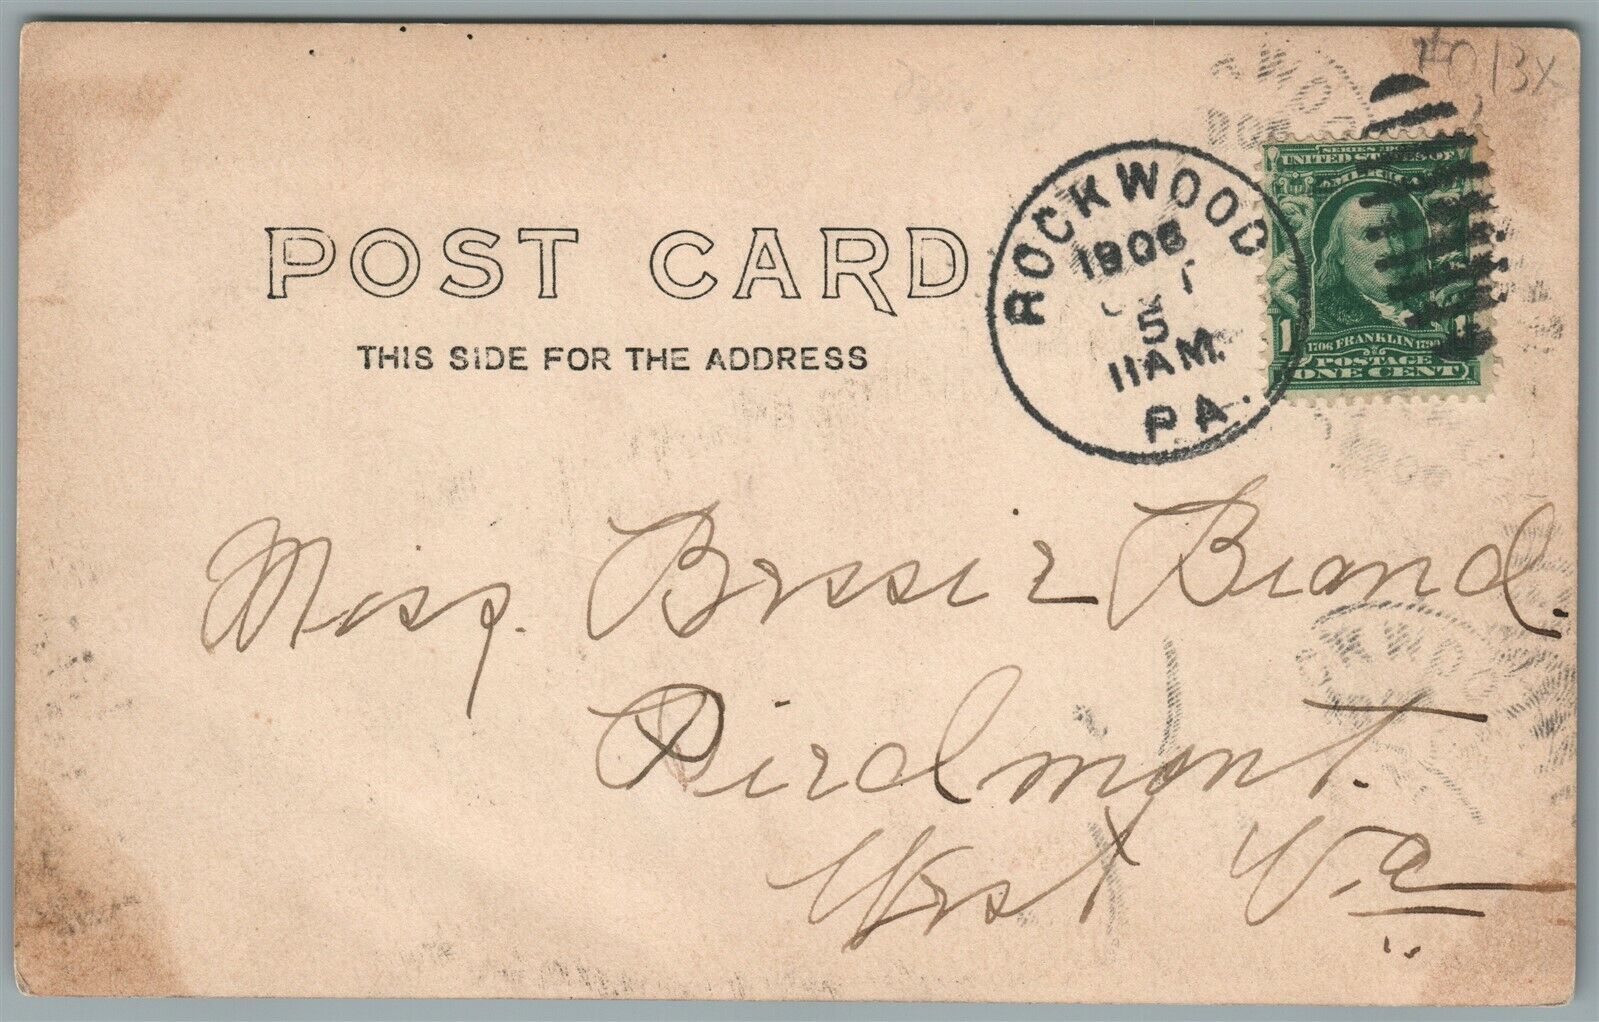 #013X
POST CARD
THIS SIDE FOR THE ADDRESS
ROCKWOOD
1906
OCT
5
11 AM.
PA.
SERIES 1902
UNITED STATES OF
AMERICA
1 1
1706 FRANKLIN 1790
POSTAGE
ONE CENT
Miss. Bessie Biand.
Piedmont.
West Va